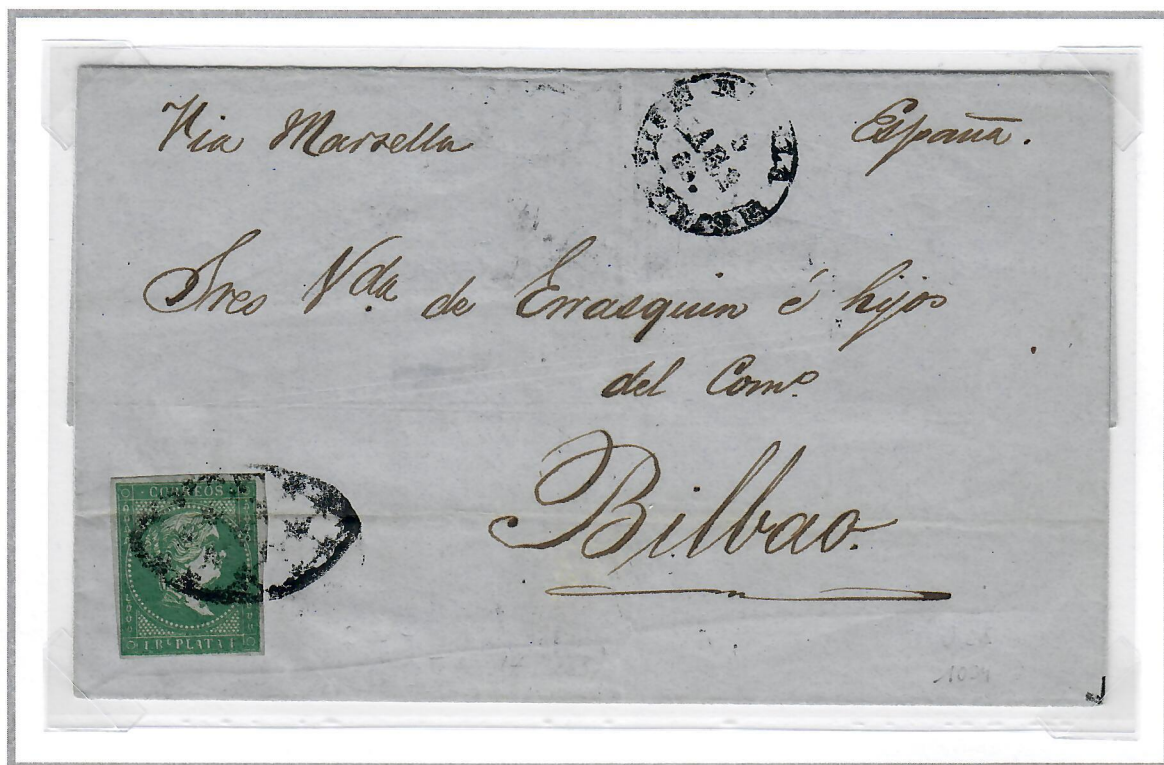 Via Marsella
España.
Sres Vda de Errasquin é hijos
del Como.
Bilbao.
CORREOS
1 Rl PLATA F